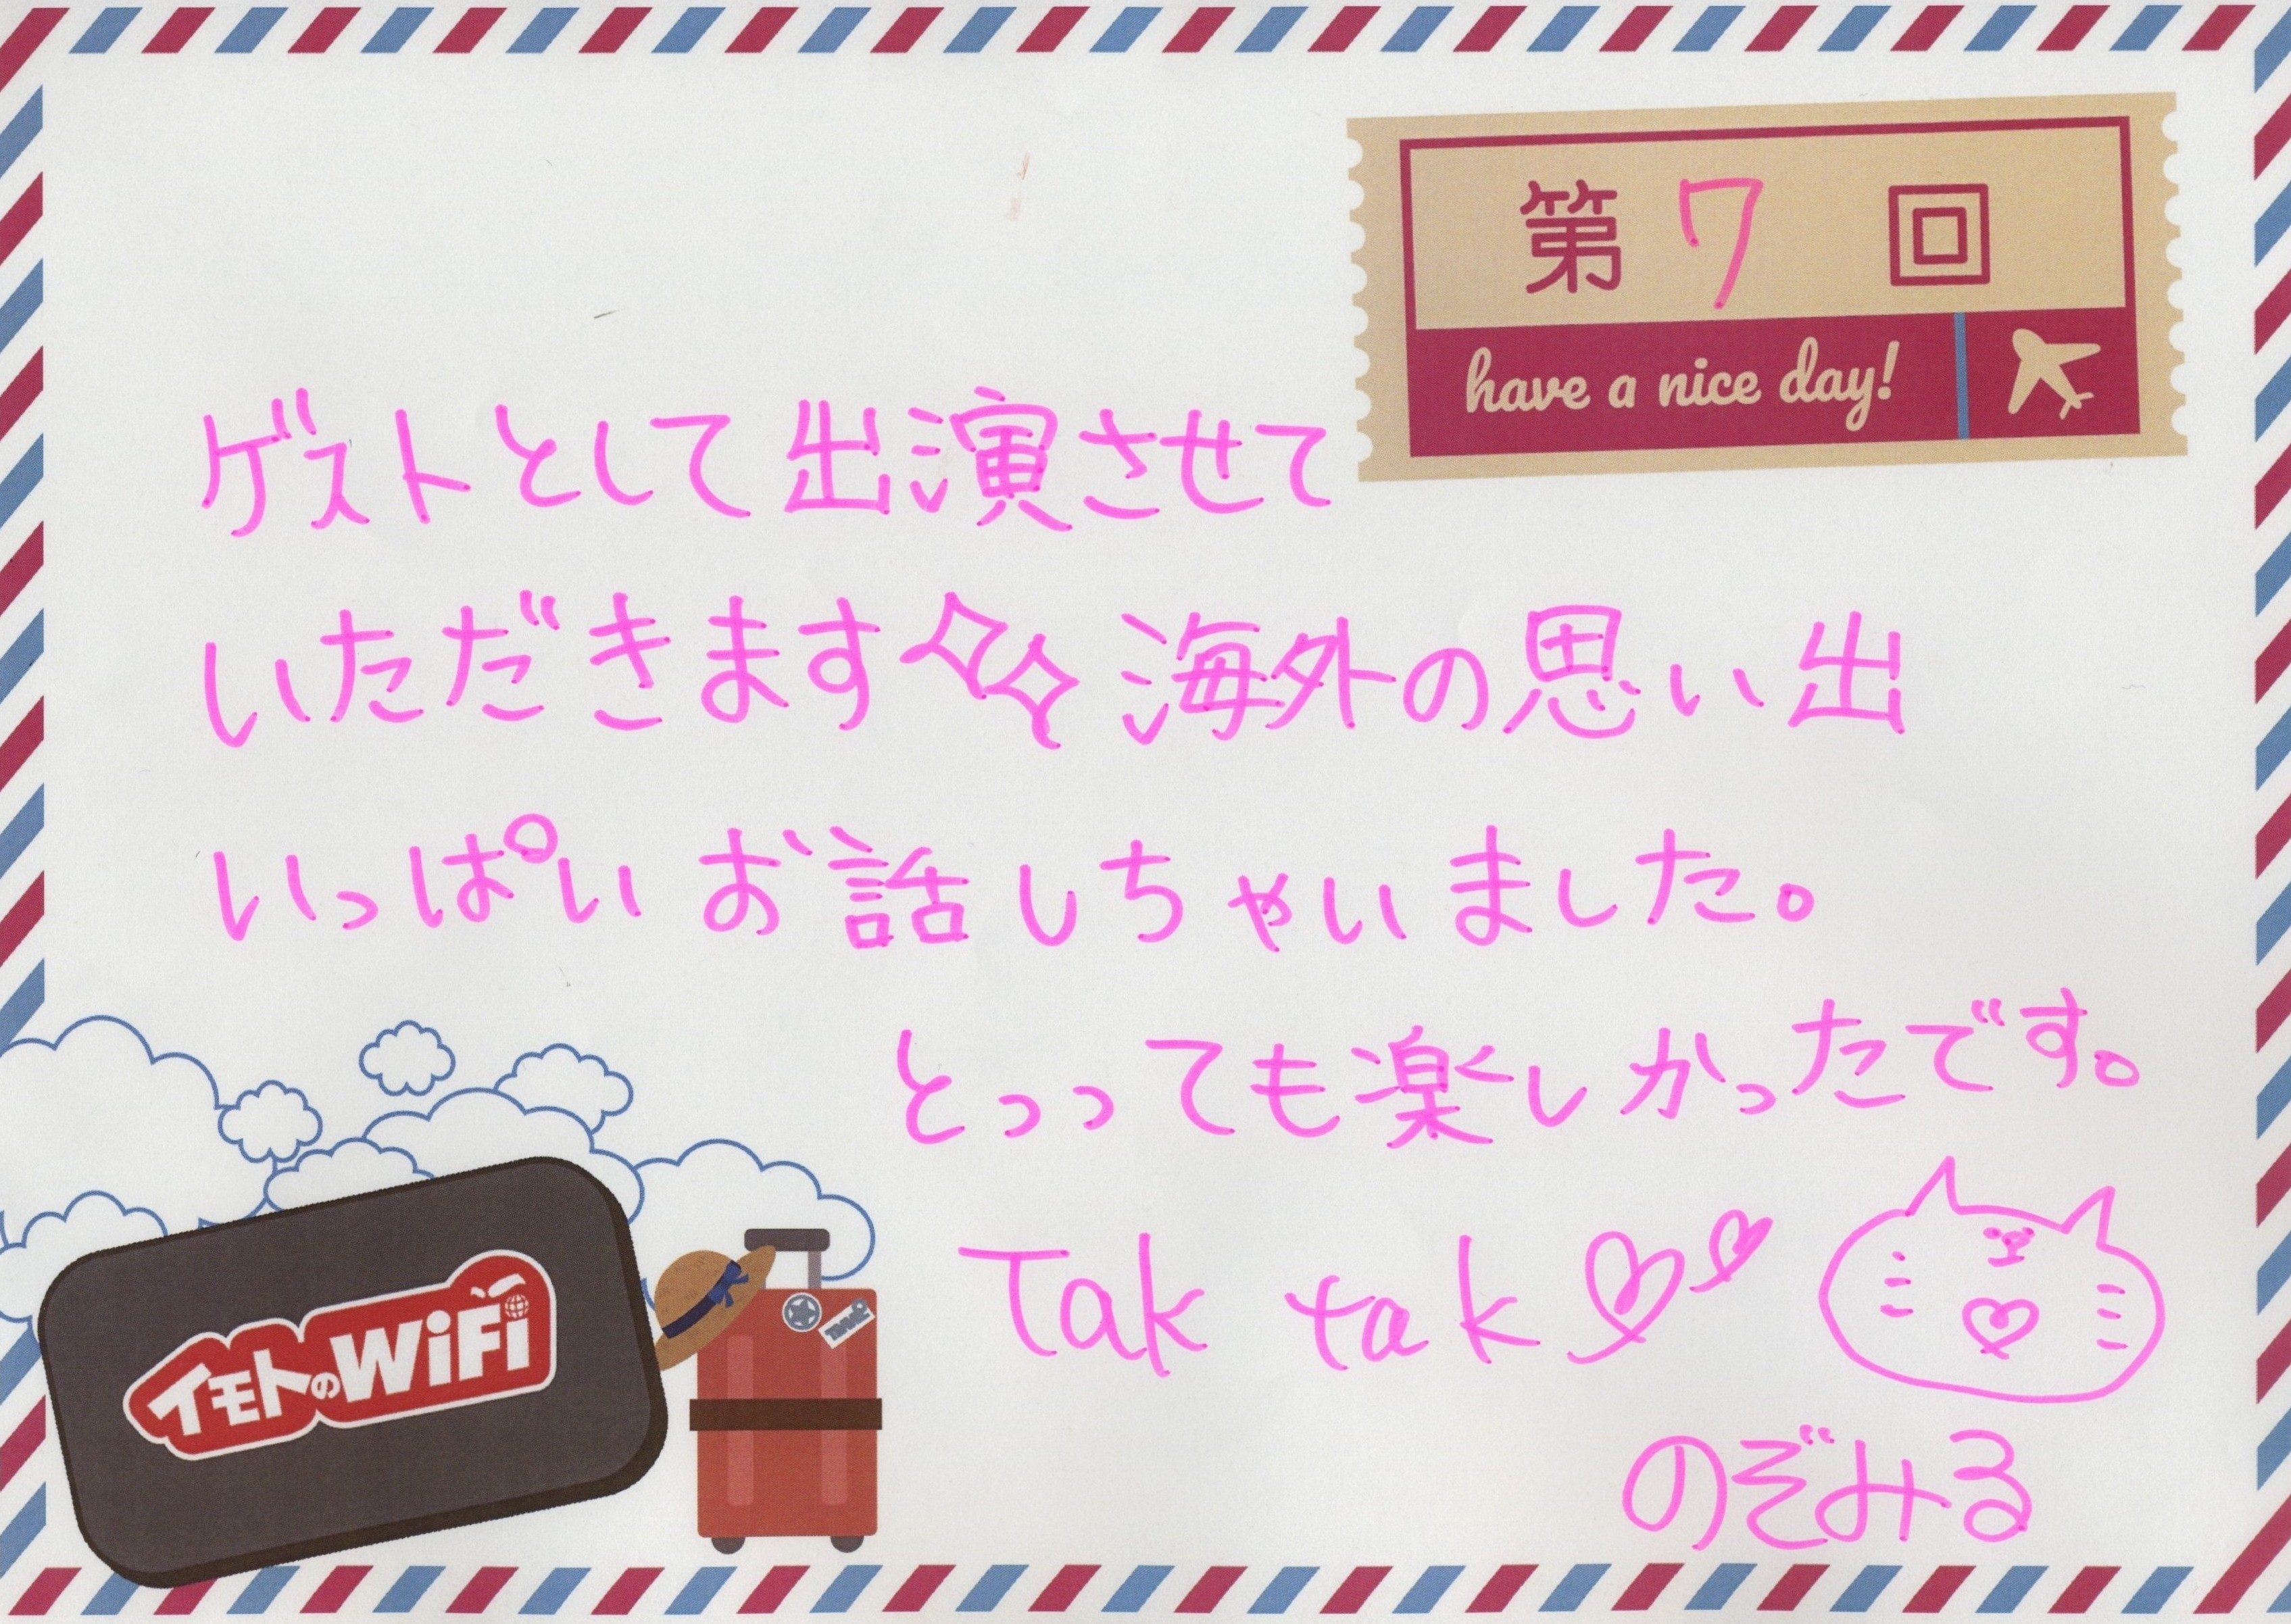 第7回
have a nice day!
ゲストとして出演させて
いただきます 海外の思い出
いっぱいお話しちゃいました。
とっっても楽しかったです。
Tak tak
のぞみる
イモトのWiFi